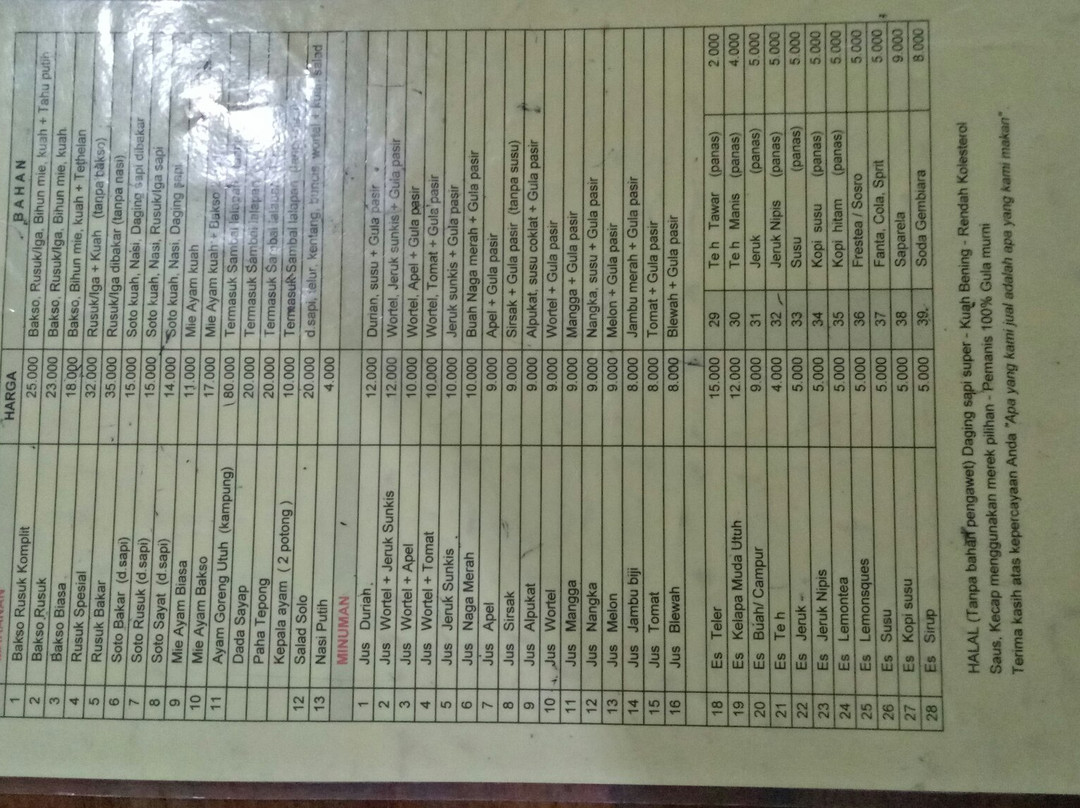 HARGA BAHAN
1 Bakso Rusuk Komplit 25.000 Bakso, Rusuk/Iga, Bihun mie, kuah + Tahu putih
2 Bakso Rusuk 23.000 Bakso, Rusuk/Iga, Bihun mie, kuah
3 Bakso Biasa 18.000 Bakso, Bihun mie, kuah + Tethelan
4 Rusuk Spesial 32.000 Rusuk/Iga + Kuah (tanpa bakso)
5 Rusuk Bakar 35.000 Rusuk/Iga dibakar (tanpa nasi)
6 Soto Bakar (d.sapi) 15.000 Soto kuah, Nasi, Daging sapi dibakar
7 Soto Rusuk (d.sapi) 15.000 Soto kuah, Nasi, Rusuk/Iga sapi
8 Soto Sayat (d.sapi) 14.000 Soto kuah, Nasi, Daging sapi
9 Mie Ayam Biasa 11.000 Mie Ayam kuah
10 Mie Ayam Bakso 17.000 Mie Ayam kuah + Bakso
11 Ayam Goreng Utuh (kampung) 80.000 Termasuk Sambal
Dada Sayap 20.000 Termasuk Sambal
Paha Tepong 20.000 Termasuk Sambal
Kepala ayam ( 2 potong ) 10.000 Termasuk Sambal
12 Salad Solo 20.000 d.sapi, telur, kentang, buncis, wortel + salad
13 Nasi Putih 4.000
MINUMAN
1 Jus Duriah 12.000 Durian, susu + Gula pasir
2 Jus Wortel + Jeruk Sunkis 12.000 Wortel, Jeruk sunkis + Gula pasir
3 Jus Wortel + Apel 10.000 Wortel, Apel + Gula pasir
4 Jus Wortel + Tomat 10.000 Wortel, Tomat + Gula pasir
5 Jus Jeruk Sunkis 10.000 Jeruk sunkis + Gula pasir
6 Jus Naga Merah 10.000 Buah Naga merah + Gula pasir
7 Jus Apel 9.000 Apel + Gula pasir
8 Jus Sirsak 9.000 Sirsak + Gula pasir (tanpa susu)
9 Jus Alpukat 9.000 Alpukat, susu coklat + Gula pasir
10 Jus Wortel 9.000 Wortel + Gula pasir
11 Jus Mangga 9.000 Mangga + Gula pasir
12 Jus Nangka 9.000 Nangka, susu + Gula pasir
13 Jus Melon 9.000 Melon + Gula pasir
14 Jus Jambu biji 8.000 Jambu merah + Gula pasir
15 Jus Tomat 8.000 Tomat + Gula pasir
16 Jus Blewah 8.000 Blewah + Gula pasir
18 Es Teler 15.000 29 Te h Tawar (panas) 2.000
19 Es Kelapa Muda Utuh 12.000 30 Te h Manis (panas) 4.000
20 Es Buah/ Campur 9.000 31 Jeruk (panas) 5.000
21 Es Te h 4.000 32 Jeruk Nipis (panas) 5.000
22 Es Jeruk 5.000 33 Susu (panas) 5.000
23 Es Jeruk Nipis 5.000 34 Kopi susu (panas) 5.000
24 Es Lemontea 5.000 35 Kopi hitam (panas) 5.000
25 Es Lemonsques 5.000 36 Frestea / Sosro 5.000
26 Es Susu 5.000 37 Fanta, Cola, Sprit 5.000
27 Es Kopi susu 5.000 38 Saparela 9.000
28 Es Sirup 5.000 39. Soda Gembiara 8.000
HALAL (Tanpa bahan pengawet) Daging sapi super - Kuah Bening - Rendah Kolesterol
Saus, Kecap menggunakan merek pilihan - Pemanis 100% Gula murni
Terima kasih atas kepercayaan Anda "Apa yang kami jual adalah apa yang kami makan".